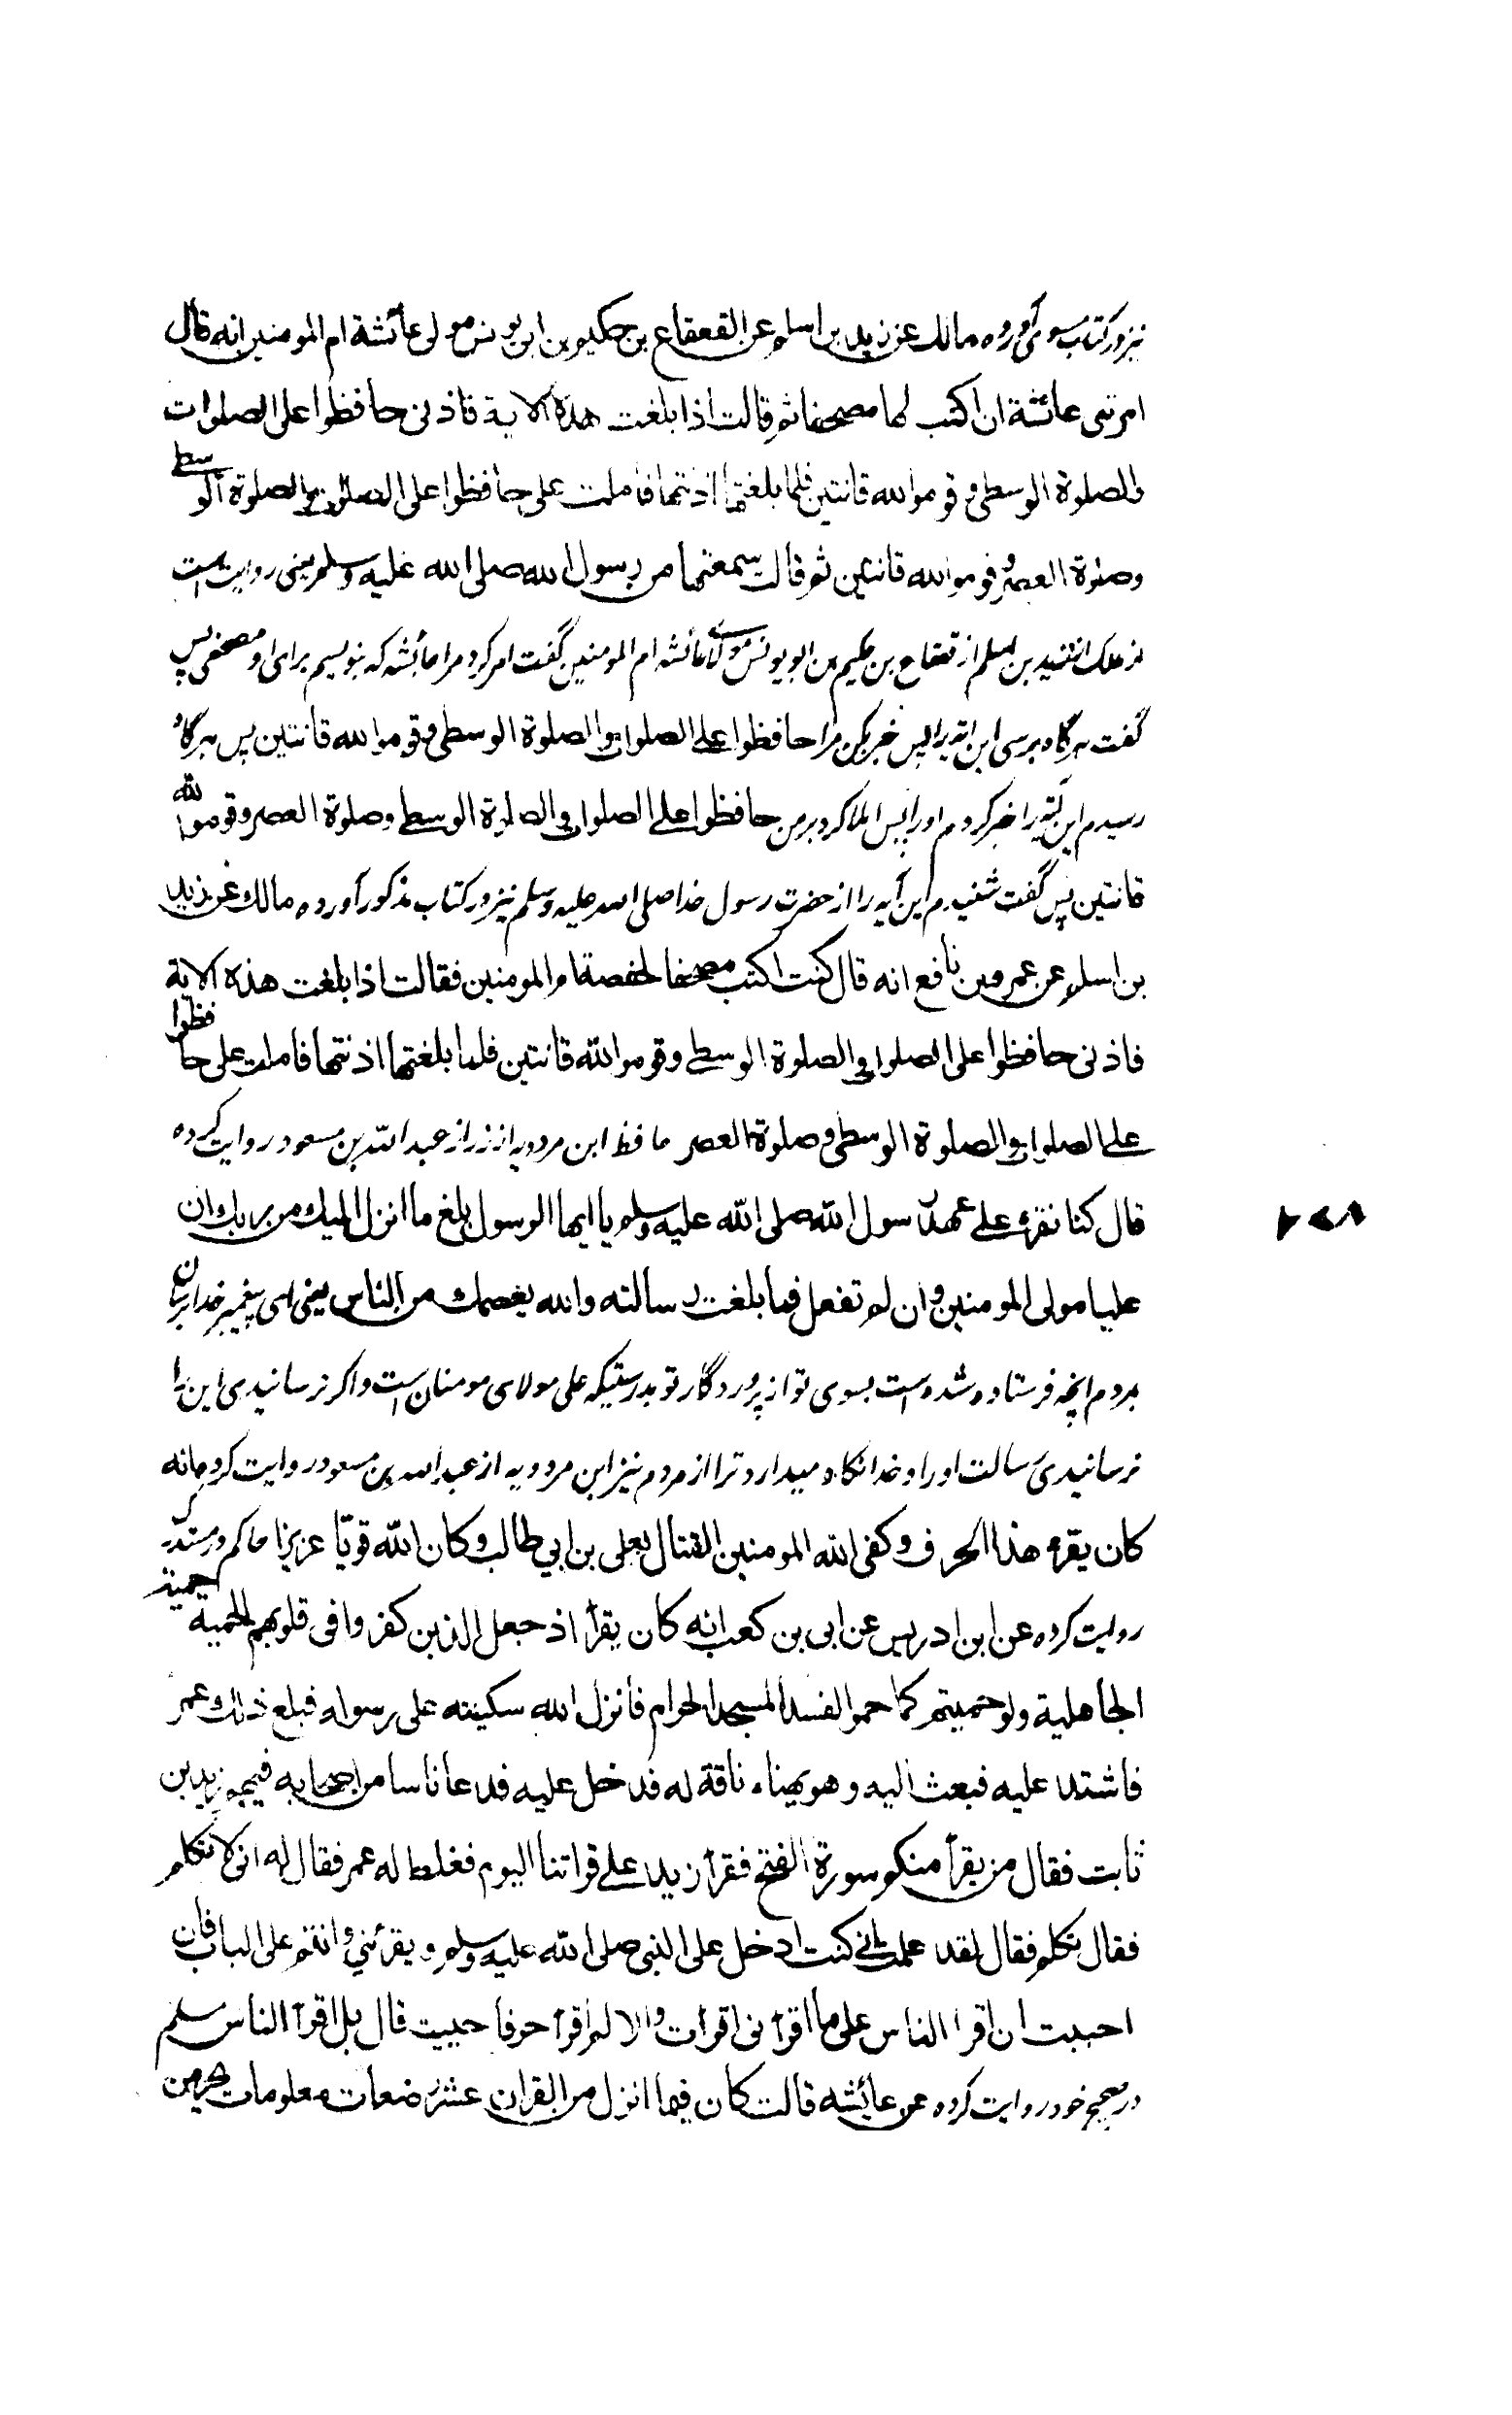 نیز در کتاب مسوی آورده مالك عن زيد بن اسلم عن القعقاع بن حكيم بن ابي يونس مولى عائشة ام المومنين انه قال
امرتني عائشة ان اكتب لها مصحفا ثم قالت اذا بلغت هذه الاية فاذني حافظوا على الصلوات
والصلوة الوسطى وقوموا لله قانتين فلما بلغتها اذنتها فاملت على حافظوا على الصلوات والصلوة الوسطى
وصلوة العصر وقوموا لله قانتين ثم قالت سمعتها من رسول الله صلى الله عليه وسلم یعنی روایت است
از مالک از زید بن اسلم از قعقاع بن حکیم من ابو یونس مولای عائشه ام المومنین گفت امر کرد مرا عائشه که بنویسم برای او مصحفی پس
گفت هرگاه برسی این آیه را پس خبر بکن مرا حافظوا على الصلوات والصلوة الوسطى وقوموا لله قانتين پس هرگاه
رسیدم این آیه را خبر کردم او را پس املا کرد بر من حافظوا على الصلوات والصلوة الوسطى وصلوة العصر وقوموا لله
قانتين پس گفت شنیدم این آیه را از حضرت رسول خدا صلی الله علیه وسلم نیز در کتاب مذکور آورده مالك عن زيد
بن اسلم عن عمرو بن نافع انه قال كنت اكتب مصحفا لحفصة ام المومنين فقالت اذا بلغت هذه الاية
فاذني حافظوا على الصلوات والصلوة الوسطى وقوموا لله قانتين فلما بلغتها اذنتها فاملت على حافظوا
على الصلوات والصلوة الوسطى وصلوة العصر حافظ ابن مردویه از زر از عبد الله بن مسعود روایت کرده
قال كنا نقرء على عهد رسول الله صلى الله عليه وسلم يا ايها الرسول بلغ ما انزل اليك من ربك ان
عليا مولى المومنين وان لم تفعل فما بلغت رسالته والله يعصمك من الناس یعنی ای پیغمبر خدا برسان
بمردم انچه فرستاده شده است بسوی تو از پروردگار تو بدرستیکه علی مولای مومنان است و اگر نرسانیدی این را
نرسانیدی رسالت او را و خدا نگاه میدارد ترا از مردم نیز ابن مردویه از عبد الله بن مسعود روایت کرده انه
كان يقرء هذا الحرف وكفى الله المومنين القتال بعلي بن ابي طالب وكان الله قويا عزيزا حاکم در مستدرک
روایت کرده عن ابن ادريس عن ابي بن كعب انه كان يقرأ اذ جعل الذين كفروا في قلوبهم الحمية حمية
الجاهلية ولو حميتم كما حموا لفسد المسجد الحرام فانزل الله سكينته على رسوله فبلغ ذلك عمر
فاشتد عليه فبعث اليه وهو يهناء ناقة له فدخل عليه فدعا ناسا من اصحابه فيهم زيد بن
ثابت فقال من يقرأ منكم سورة الفتح فقرأ زيد على قراتنا اليوم فغلط له عمر فقال له اني لاتكلم
فقال تكلم فقال لقد علمت اني كنت ادخل على النبي صلى الله عليه وسلم ويقرئني وانتم على الباب فان
احببت ان اقرا الناس على ما اقرأني اقرات والا لم اقرأ حرفا حييت قال بل اقرأ الناس مسلم
در صحیح خود روایت کرده عن عائشه قالت كان فيما انزل من القران عشر رضعات معلومات يحرمن